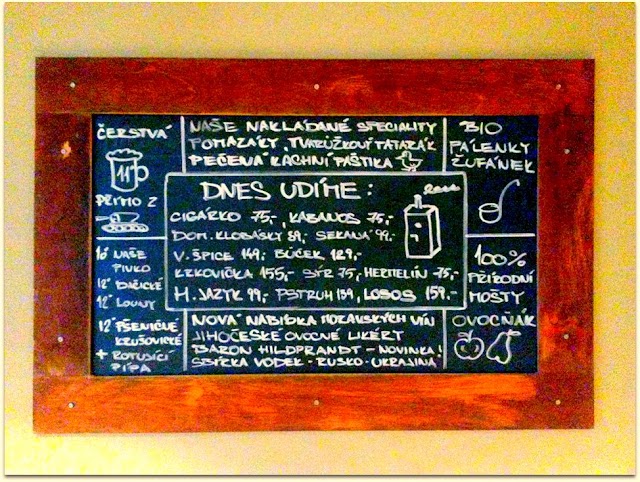 ČERSTVÁ
11°
PŘÍMO Z
10° NAŠE
PIVKO
12° DAČICKÉ
12° LOUNY
12° PŠENIČNÉ
KRUŠOVICKÉ
+ ROTUJÍCÍ
PÍPA
NAŠE NAKLÁDANÉ SPECIALITY
POMAZÁKY, TVARŮŽKOVÝ TATARÁK
PEČENÁ KACHNÍ PAŠTIKA
DNES UDÍME:
CIGÁRKO 75,-, KABANOS 75,-
DOM. KLOBÁSKY 89,- SEKANÁ 99,-
V. ŠPICE 149,- BŮČEK 129,-
KRKOVIČKA 155,- SÝR 75, HERMELÍN 75,-
H. JAZYK 99,- PSTRUH 139, LOSOS 159.-
NOVÁ NABÍDKA MORAVSKÝCH VÍN
JIHOČESKÉ OVOCNÉ LIKÉRY
BARON HILDPRANDT - NOVINKA!
SBÍRKA VODEK - RUSKO - UKRAJINA
BIO
PÁLENKY
ŽUFÁNEK
100%
PŘÍRODNÍ
MOŠTY
OVOCŇÁK